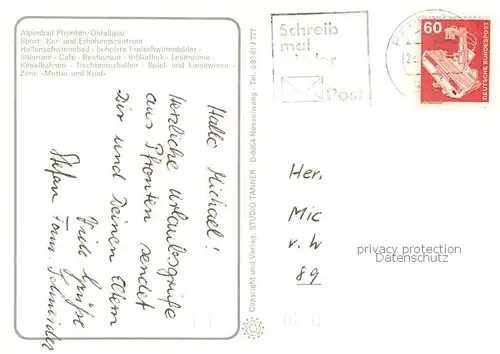 Alpenbad Pfronten/Ostallgäu
Sport-, Kur- und Erholungszentrum
Hallenschwimmbad - beheizte Freischwimmbäder -
Solarium - Café - Restaurant - Bibliothek - Leseräume -
Kegelbahnen - Tischtennishallen - Spiel- und Liegewiese -
Zone »Mutter und Kind«
Hallo Michael!
Herzliche Urlaubsgrüße
aus Pfronten sendet
Dir und Deinen Eltern
Viele Grüße
Stefan Fam. Schneider
Copyright und Verlag: STUDIO TANNER · D-8964 Nesselwang · Tel. 0 83 61 / 777
Schreib
mal
wieder
Post
60
DEUTSCHE BUNDESPOST
Her.
Mic
v. W
89
privacy protection
Datenschutz